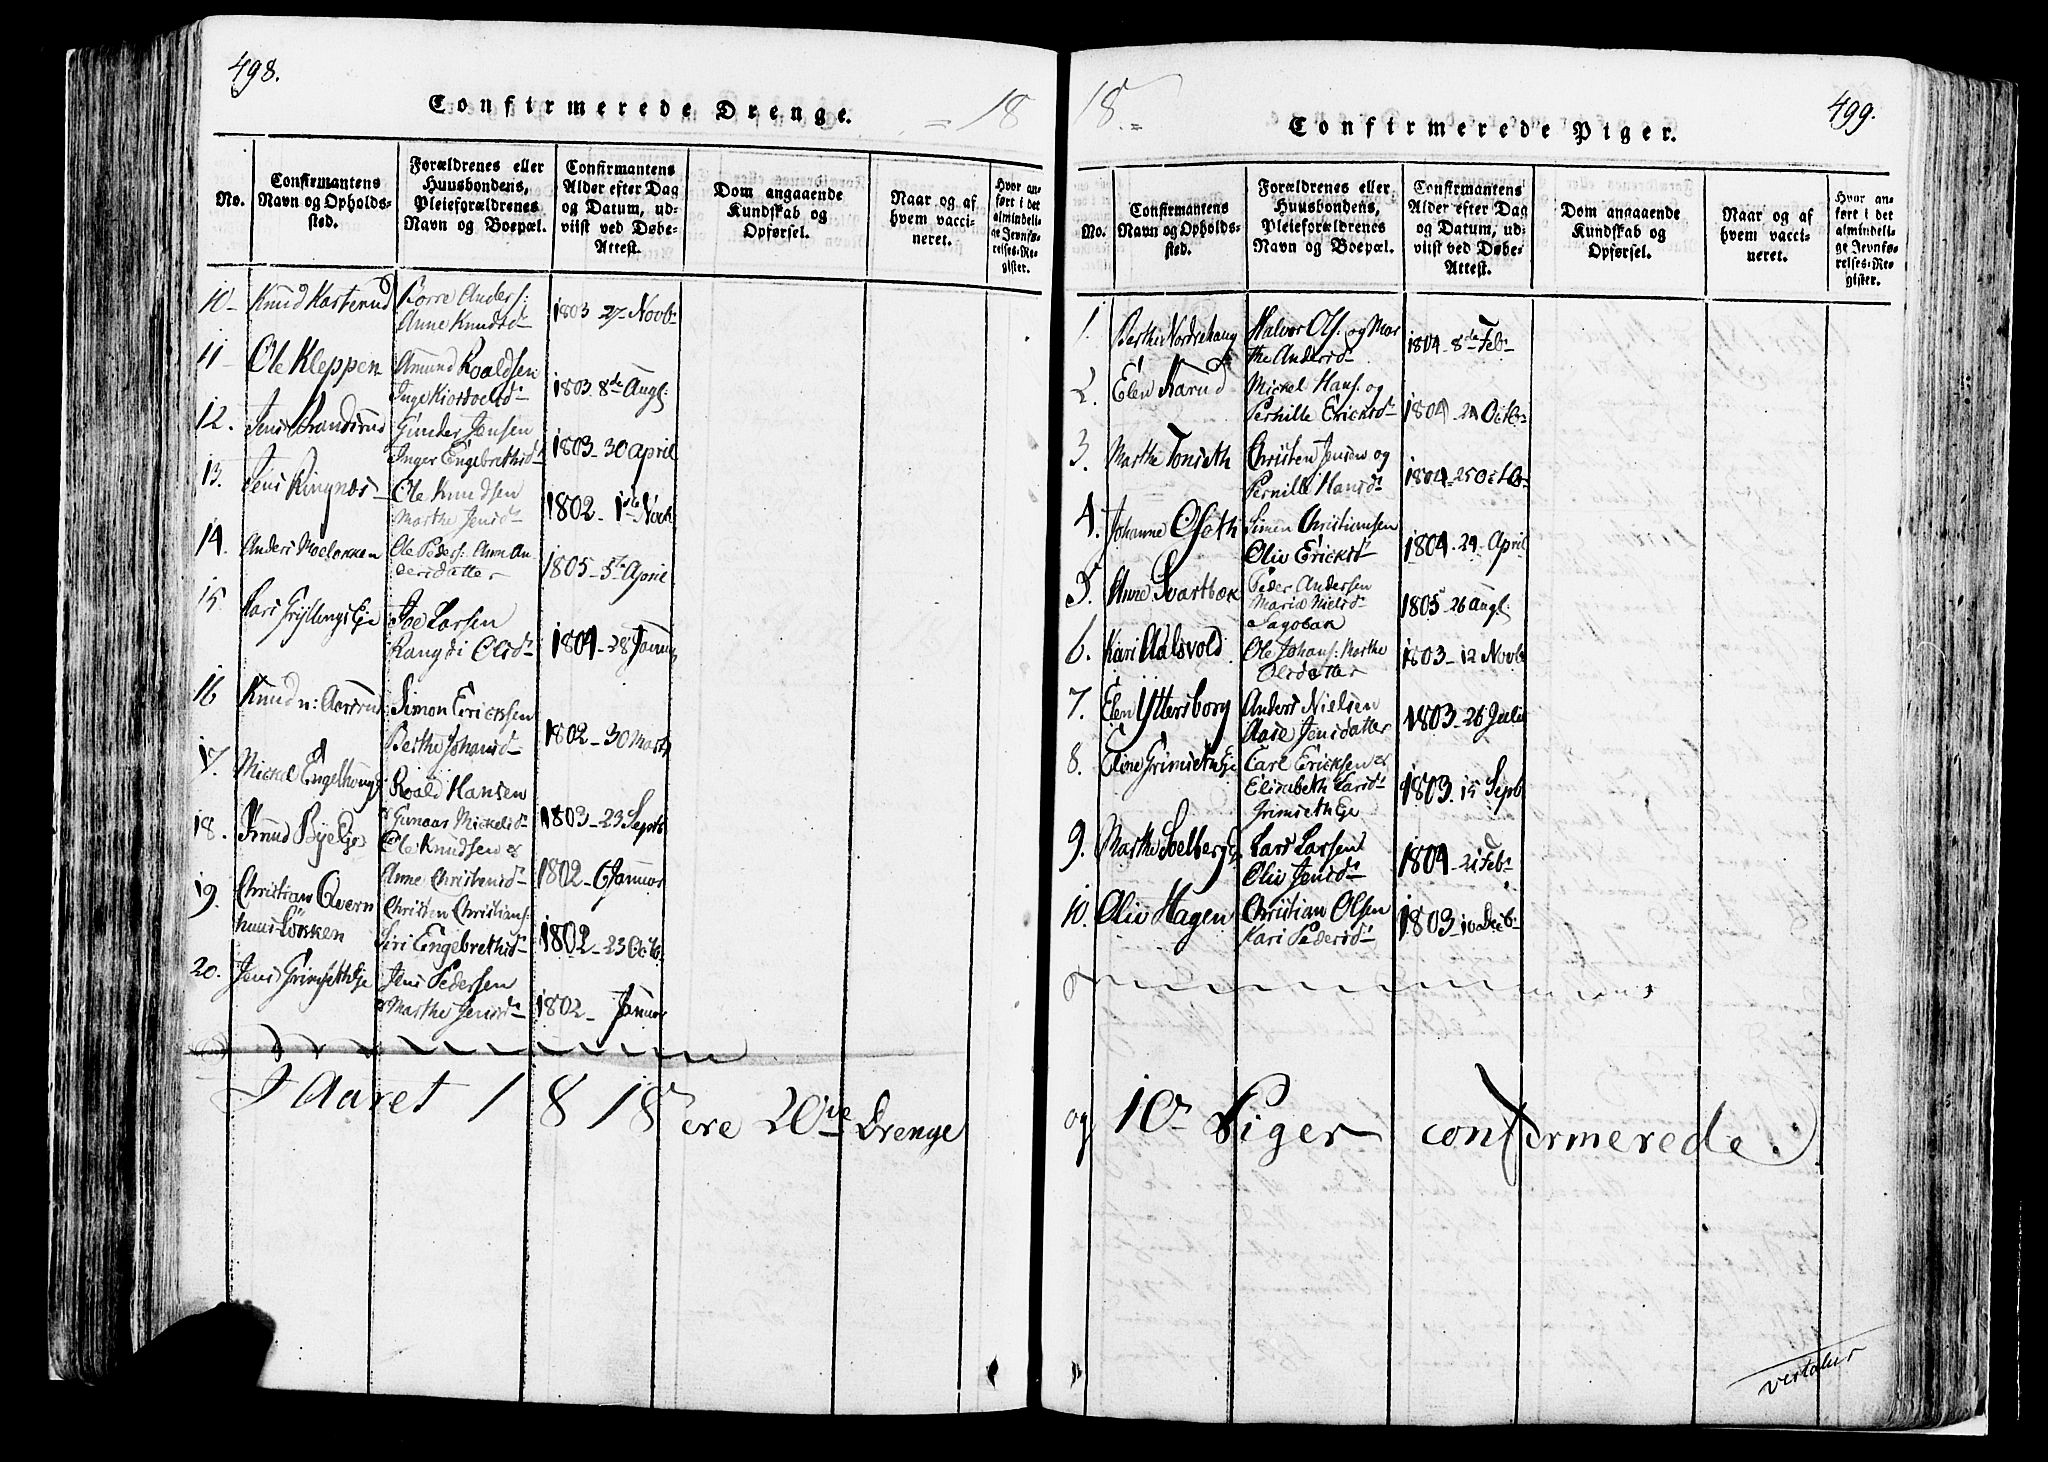 498.
Confirmerede Drenge.
18
No.
Confirmantens
Navn og Opholds-
sted.
Forældrenes eller
Huusbondens,
Pleieforældrenes
Navn og Boepæl.
Confirmantens
Alder efter Dag
og Datum, ud-
viist ved Døbe-
Attest.
Dom angaaende
Kundskab og
Opførsel.
Naar og af
hvem vacci-
neret.
Hvor an-
ført i det
almindeli-
ge Jevnfø-
relses-Re-
gister.
10 Knud Borre Anders:
Anne Knudsd 1803 27 Novb
11 Ole Kleppen Amund Roaldsen
Inge 1803 8de Augl:
12. Jens Gunder Jensen
Inger Engebrethsd 1803 30 April
13. Jens Ringnæs Ole Knudsen
Marthe Jensd 1802 1ste Novb
14. Anders Moeløkken Ole Peders: Anne An-
dersdatter 1805 5te April
15 Lars Larsen
Rangdi Olsd 1804 28 Januar
16 Knud n: Aasrud Simon Ericksen
Berthe Johansd 1802 30 Marts
17. Mickel Engelhoug Roald Hansen
Gunaar Mickelsd 1803 23 Septb
18. Knud Bye Eje Ole Knudsen &
Anne Christensd 1802 6 Januar
19. Christian Qvern
huus Løkken Christen Christians:
Siri Engebrethsd 1802 23 Octb
20. Jens Grimseth Eje Jens Pedersen
Marthe Jensd 1802 Januar
I Aaret 1818 ere 20ve Drenge
499.
18.
Confirmerede Piger.
No.
Confirmantens
Navn og Opholds-
sted.
Forældrenes eller
Huusbondens,
Pleieforældrenes
Navn og Boepæl.
Confirmantens
Alder efter Dag
og Datum, ud-
viist ved Døbe-
Attest.
Dom angaaende
Kundskab og
Opførsel.
Naar og af
hvem vacci-
neret.
Hvor an-
ført i det
almindeli-
ge Jevnfø-
relses-Re-
gister.
1. Berthe Nordrehaug Halvor Ols. og Mar
the Andersd 1804 8de Feb
2. Elen Mickel Hans. og
Pernille Ericksd 1804 24 Octb
3. Marthe Tonseth Christen Jensen og
Pernille Hansd 1804 25 Octb
4. Johanne Oseth Simen Christiansen
Oliv Ericksd 1804 24 April
5. Anne Svartbæk Peder Andersen
Maria Nielsd
1805 26 Augl:
6. Kari Aalsvold Ole Johans: Marthe
Olsdatter 1803 12 Novb
7. Elen Yttersborg Anders Nielsen
Aase Jensdatter 1803 26 Julii
8. Eline Grimseth Eje Carl Ericksen &
Elisabeth Larsd
Grimseth Eje 1803 15 Septb
9. Marthe Soelberg Lars Larsen
Oliv Jensd 1804 21 Feb
10. Oliv Hagen Christian Olsen
Kari Pedersd 1803 10 Decb
og 10 Piger confirmerede.
vertatur